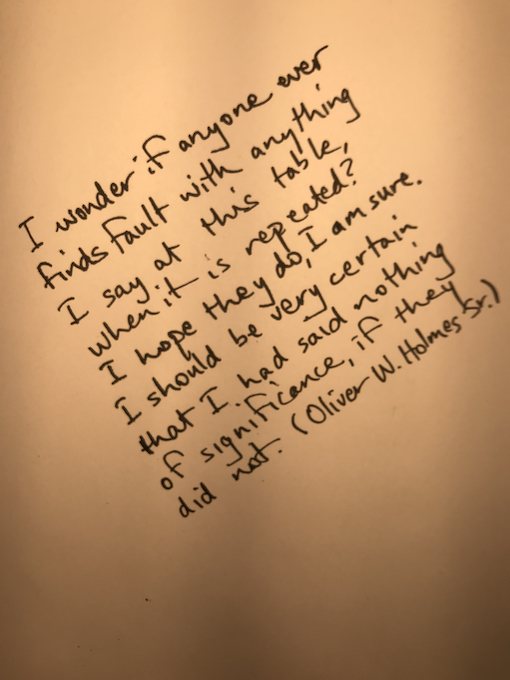 I wonder if anyone ever
finds fault with anything
I say at this table,
when it is repeated?
I hope they do, I am sure.
I should be very certain
that I had said nothing
of significance, if they
did not. (Oliver W. Holmes Sr.)